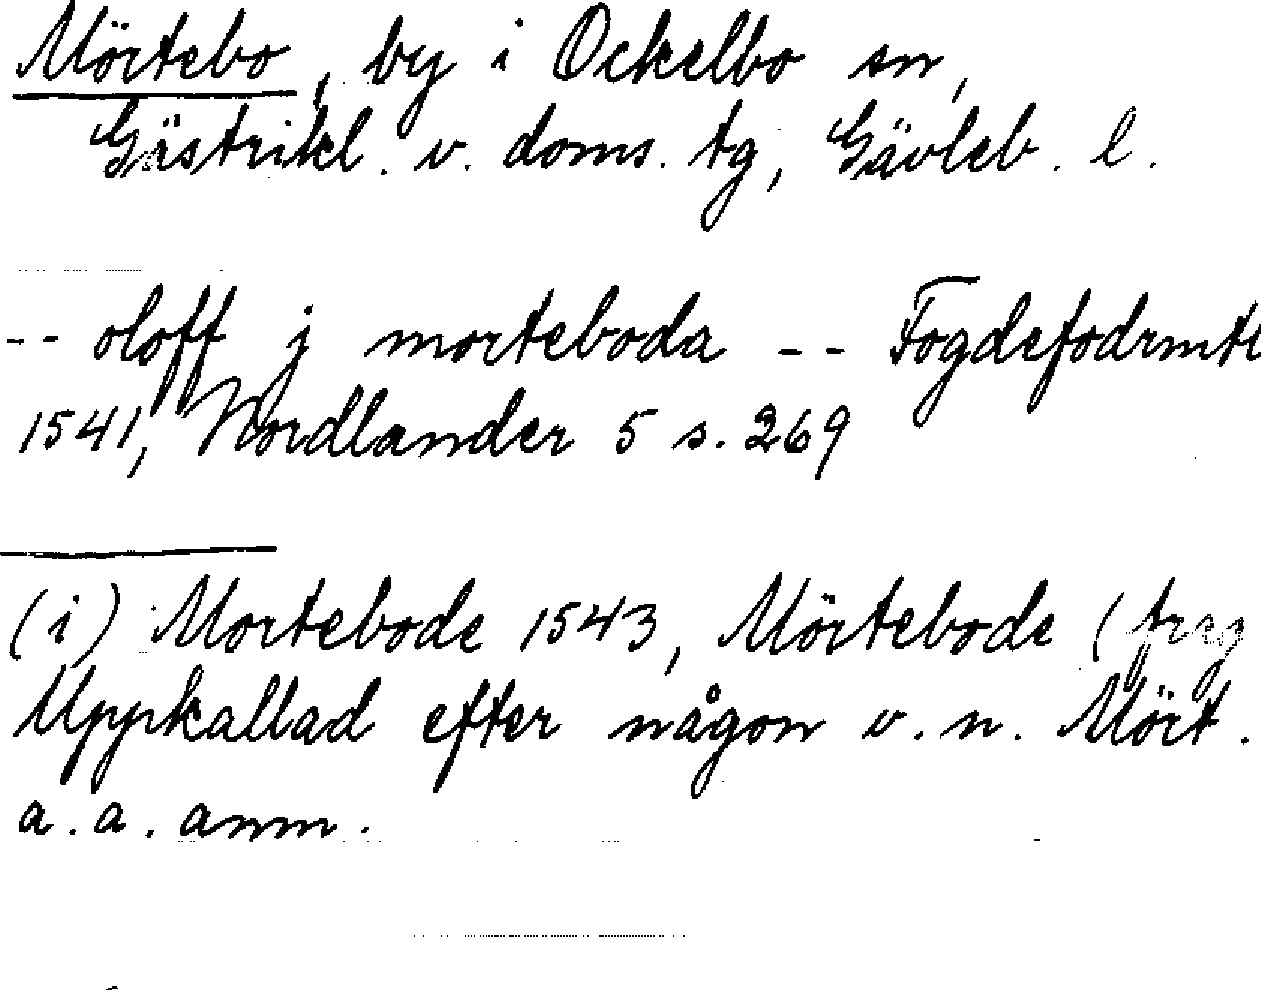 Mörtebo, by i Ockelbo sn,
Gästrikl. v. doms. tg, Gävleb. l.
-- oloff j morteboda -- Fogdefodrmtl
1541, Nordlander 5 s. 269
(i) Mortebode 1543, Mörtebode (
Uppkallad efter någon v. n. Mört.
a. a. anm.